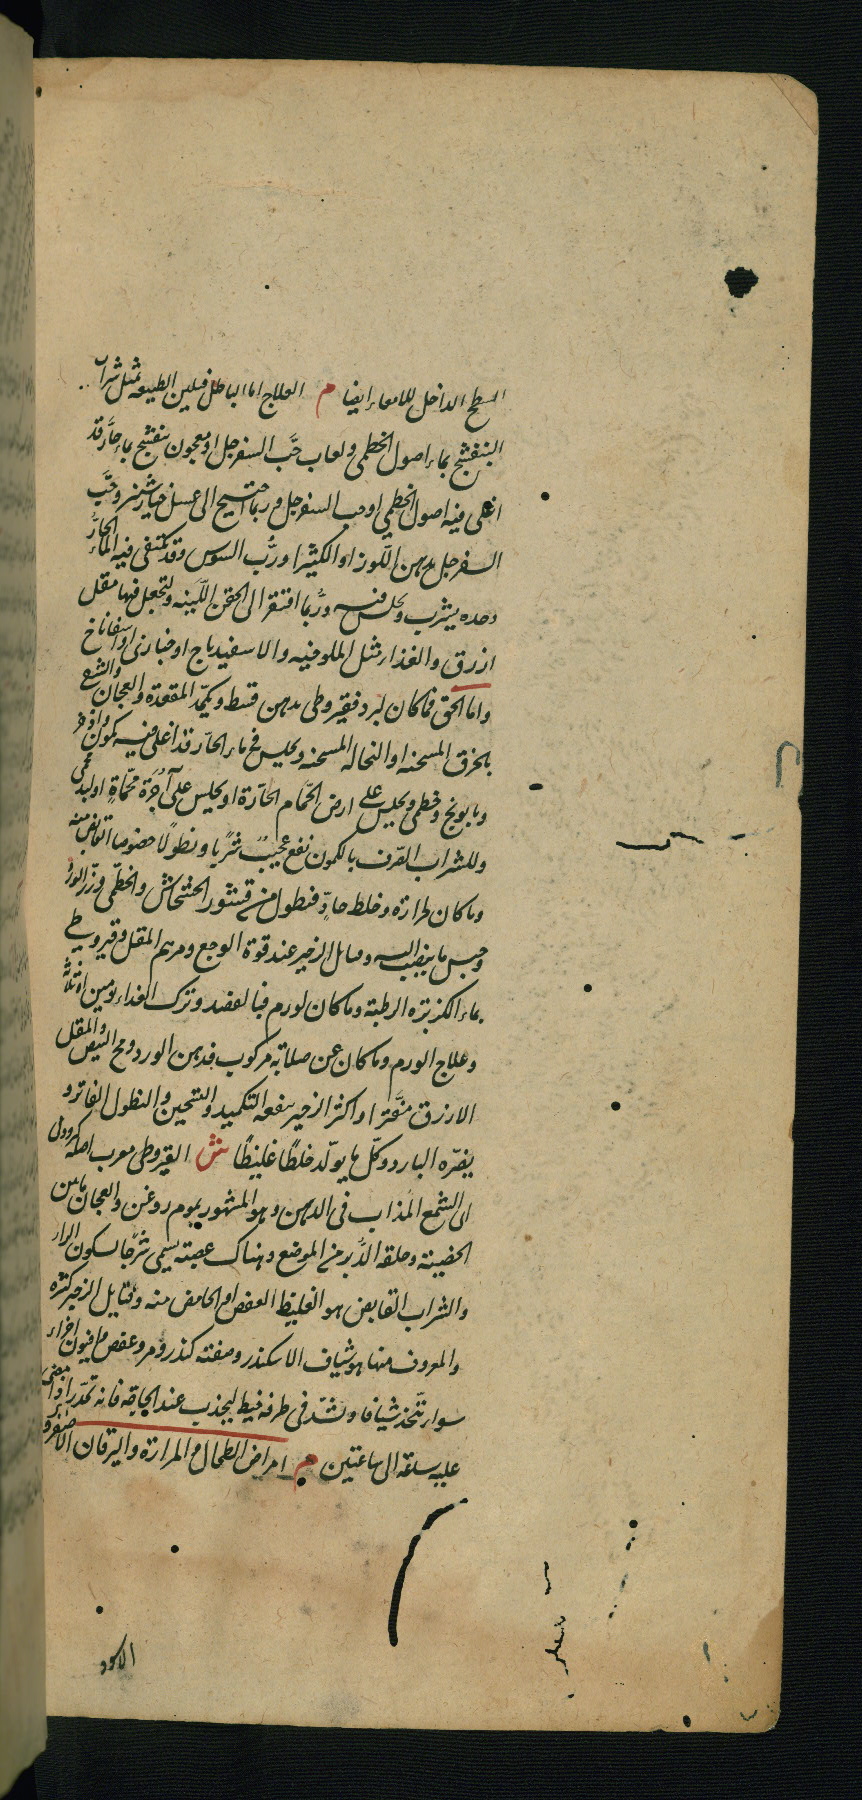 السطح الداخل للامعاء ايضا م العلاج اما الباطل فبلين الطبيعه بمثل شراب
البنفشج بماء اصول الخطمى ولعاب حَب السفرجل او معجون بنفشج بماء حار قد
اغلى فيه اصول الخطمي او حب السفرجل وربما احتيج الى عسل خيارشنبر وحَب
السفرجل بدهن اللوز او الكثيرا ورُب السوس وقد يكتفى فيه الماء الحار
وحده يشرب ويجلس فيه وربما افتقر الى الحقن اللَينه ولتجعل فيها مقل
ازرق والغذاء مثل الملوخيه والاسفيدباج او خبازى او اسفاناخ
واما الحق فما كان لبرد فقيروطى بدهن قسط ويكمد المقعدة والعجان والشرج
بالخرق المسخنه او النخاله المسخنه ويجلس فى ماء الحار قد اغلى فيه كمون واذخر
وبابونج وخطمى ويجلس على ارض الحمام الحارة او يجلس على آجرة محماة او لبد محمى
وللشراب الصرف بالكمون نفع عجيب شربا ونطولا خصوصا القابض منه
وما كان لمرارة وخلط حاد فنطول من قشور الخشخاش والخطمى وزر الورد
وحبس ما ينصب اليه وصايل الزحير عند قوة الوجع ومرهم المقل وقيروطي
بماء الكزبره الرطبة وما كان لورم فبالفصد وترك الغداء يومين او ثلثة
وعلاج الورم وما كان عن صلابه مركوب فدهن الورد ومح البيض والمقل
الازرق مفَتّرا واكثر الزحير ينفعه التكميد والتسخين والنطول الفاتر و
يضره البارد وكل ما يولد خلطا غليظا ش القيروطى معرب اصله كروولى
اى الشمع المذاب فى الدهن وهو المشهور بموم روغن والعجان ما بين
الخصيه وحلقه الدُبر من الموضع وهناك عصبه يسمى شرجا بسكون الراء
والشراب القابض هو الغليظ العفص او الحامض منه وفتايل الزحير كثيره
والمعروف منها هو شياف الاسكندر وصفته كندر ومر وعفص وافيون اجزاء
سواء تتخذ شيافا وتشد فى طرفه خيط ليجذب عند الحاجة فانه تخدر اذا مضى
عليه ساعة الى ساعتين م امراض الطحال والمرارة واليرقان الاصفر و
الاسود